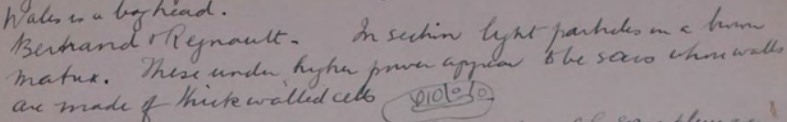 Wales is a boghead.
Bertrand & Regnault. In section light particles in a brown
matrix. These under higher power appear to be sacs whose walls
are made of thick walled cells